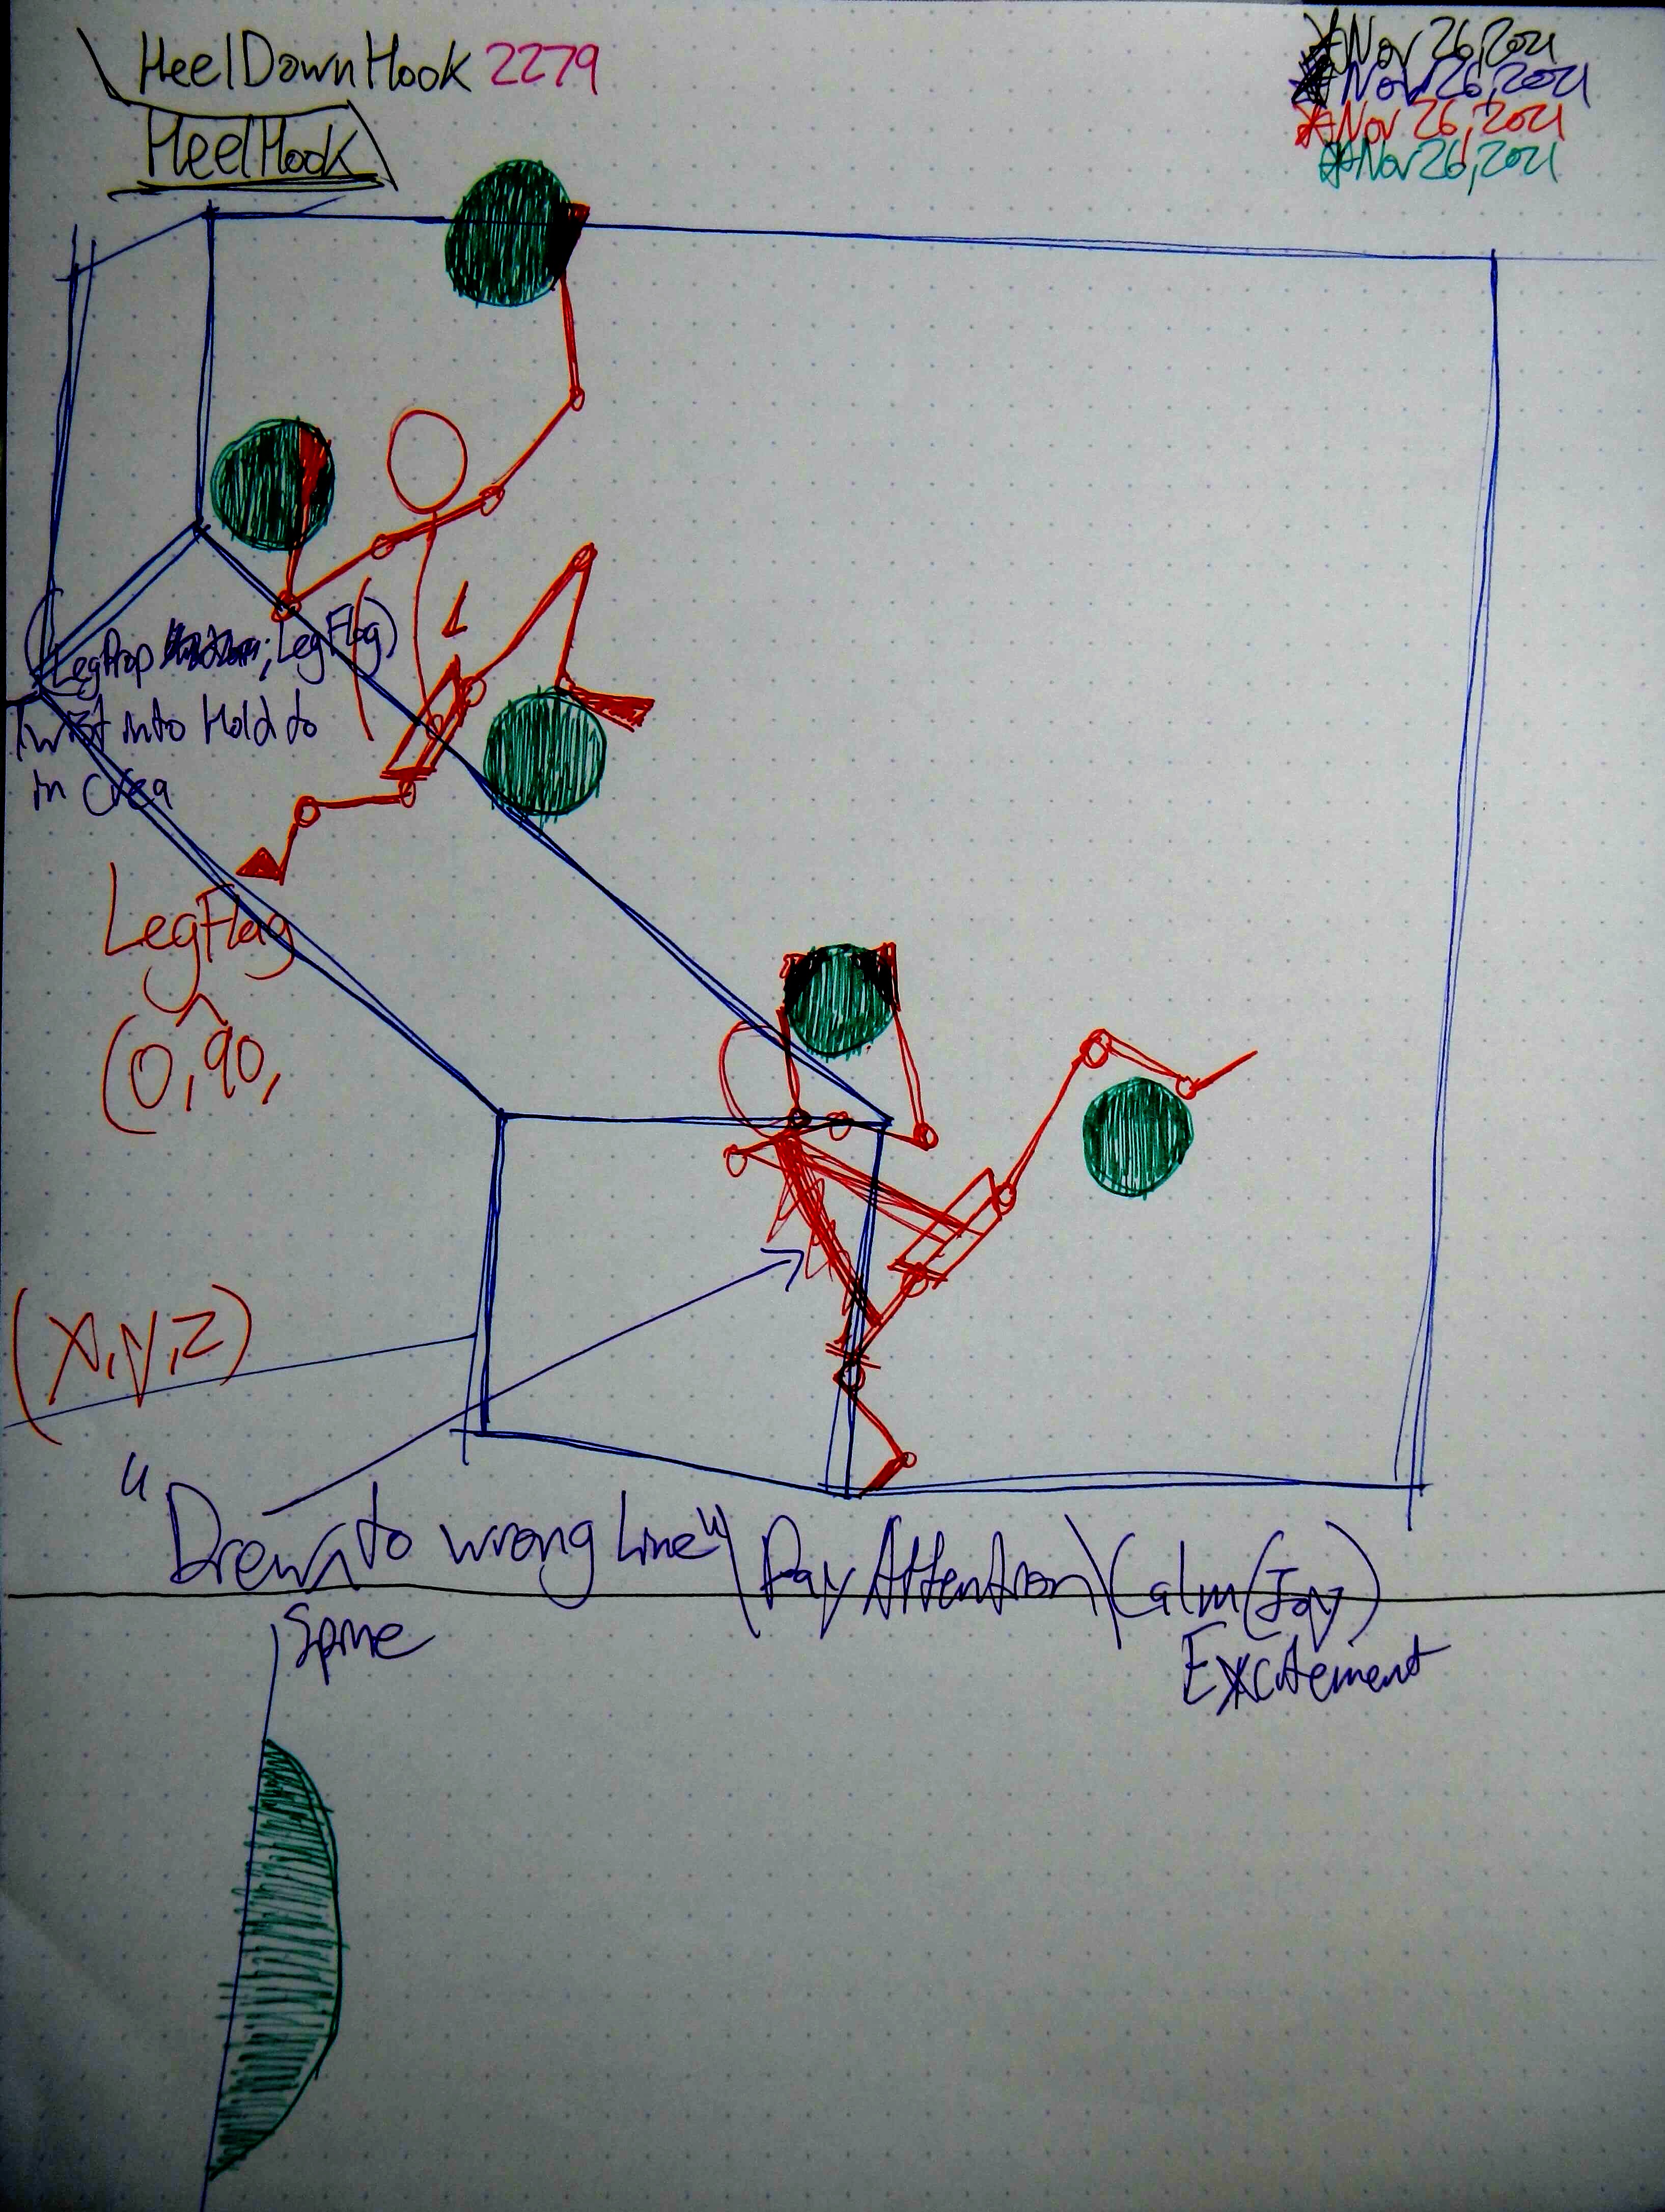 HeelDownHook 2279
HeelHook
Nov 26, 2021
Nov 26, 2021
Nov 26, 2021
Nov 26, 2021
L
(LegProp ; LegFlag)
Twist into Hold to
in
LegFlag
(0, 90,
(x, y, z)
"Drew to wrong Line" \ Pay Attention \ Calm (Joy)
Excitement
Spine